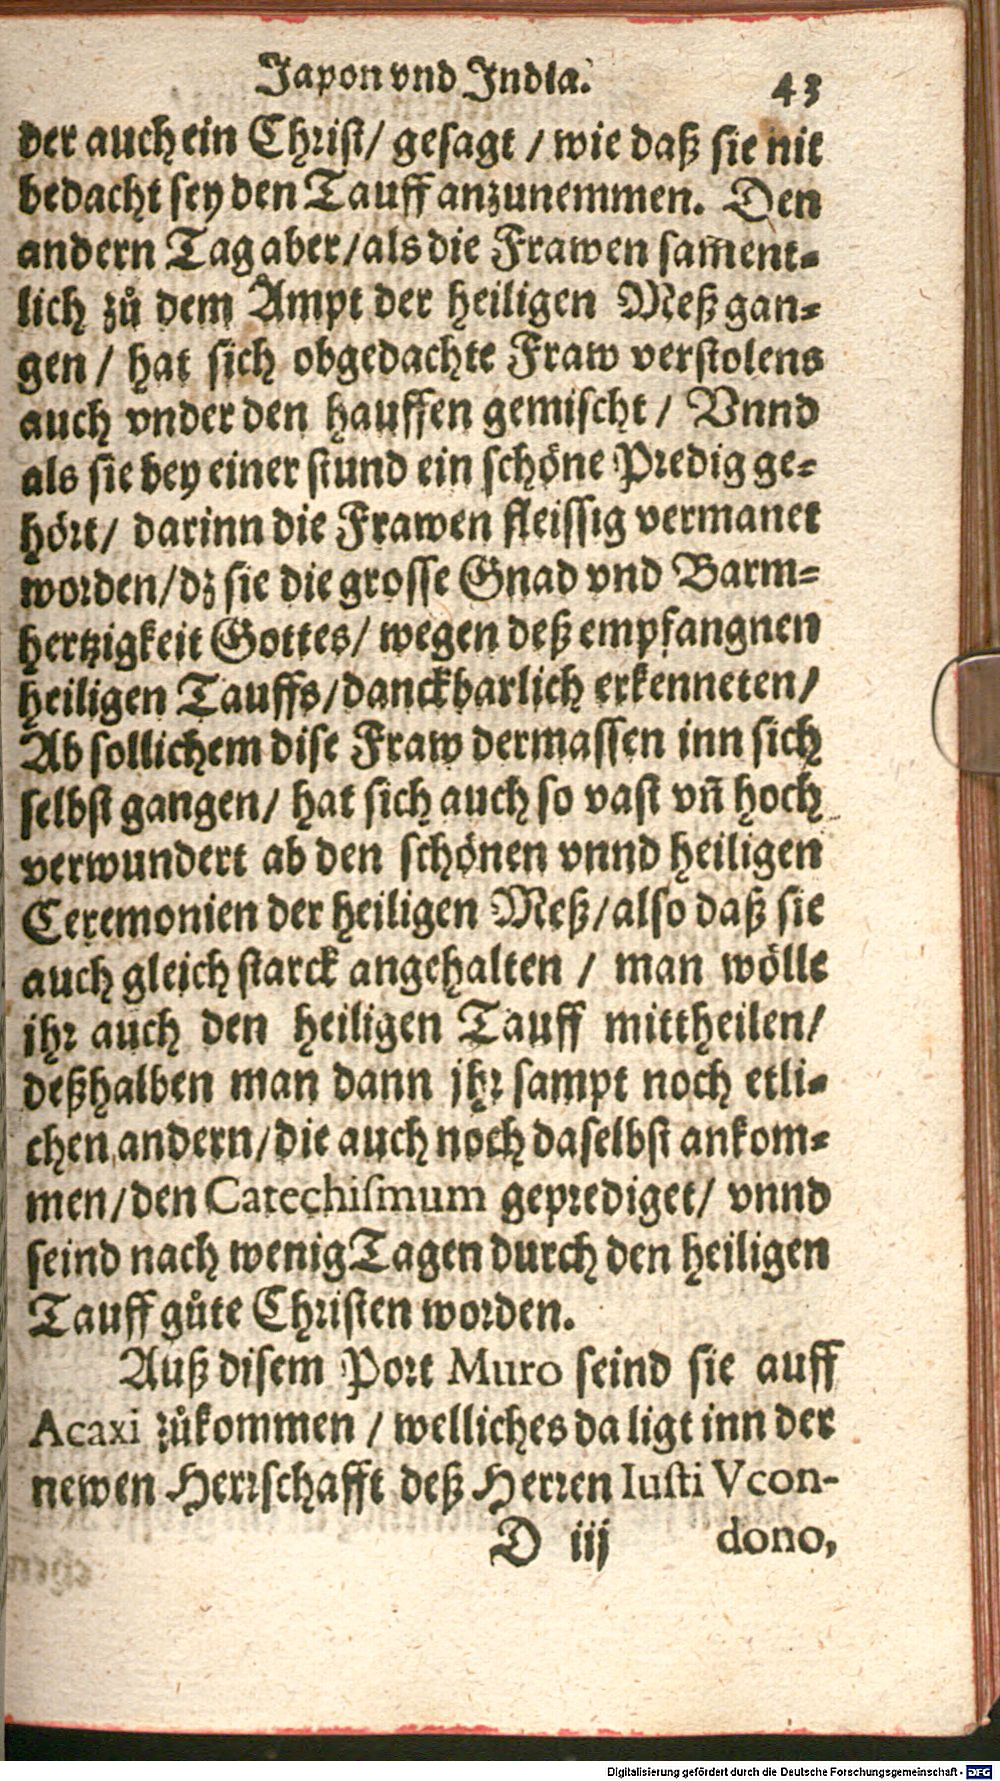 Japon vnd India. 43
der auch ein Christ/ gesagt / wie daß sie nit
bedacht sey den Tauff anzunemmen. Den
andern Tag aber/als die Frawen sam̃ent-
lich zů dem Ampt der heiligen Meß gan-
gen / hat sich obgedachte Fraw verstolens
auch vnder den hauffen gemischt / Vnnd
als sie bey einer stund ein schöne Predig ge-
hört/ darinn die Frawen fleissig vermanet
worden/dz sie die grosse Gnad vnd Barm-
hertzigkeit Gottes/ wegen deß empfangnen
heiligen Tauffs/danckbarlich erkenneten/
Ab sollichem dise Fraw dermassen inn sich
selbst gangen/ hat sich auch so vast vñ hoch
verwundert ab den schönen vnnd heiligen
Ceremonien der heiligen Meß/also daß sie
auch gleich starck angehalten / man wölle
jhr auch den heiligen Tauff mittheilen/
deßhalben man dann jhr sampt noch etli-
chen andern/die auch noch daselbst ankom-
men/den Catechismum geprediget/ vnnd
seind nach wenig Tagen durch den heiligen
Tauff gůte Christen worden.
Auß disem Port Muro seind sie auff
Acaxi zůkommen / welliches da ligt inn der
newen Herrschafft deß Herren Iusti Vcon-
D iij dono,
Digitalisierung gefördert durch die Deutsche Forschungsgemeinschaft - DFG